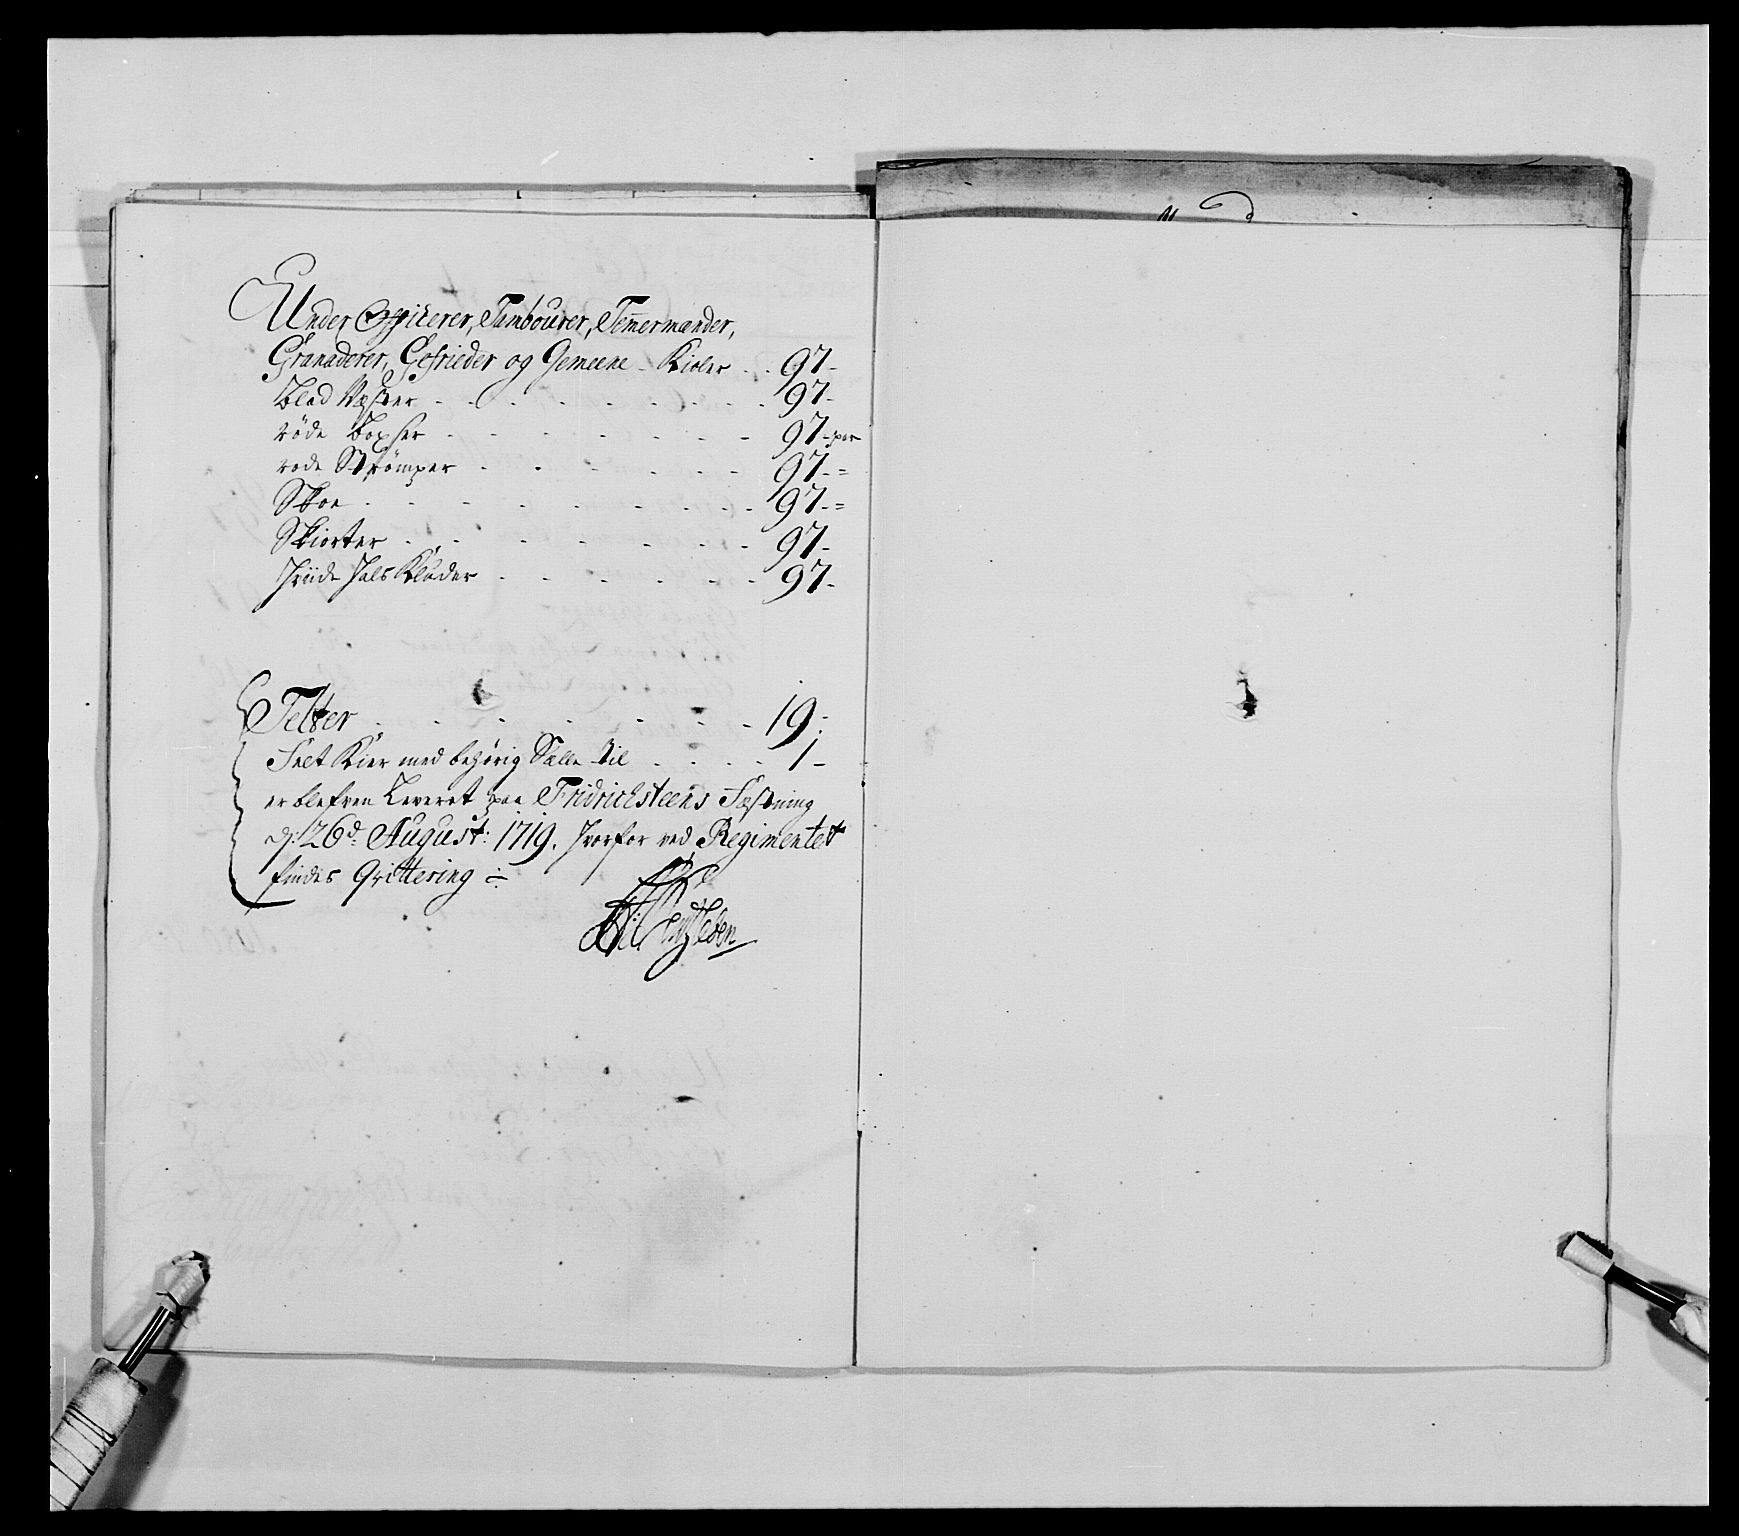 Under Officerer, Tambourer, Temermænder,
Granaderer, Gefrieder og Gemeene - Kioler - - 97 -
Blad Væsker - - - - - - - - 97 -
röde Boxser - - - - - - - 97 - par
rode Strömper - - - - - - 97 - =
Skoe - - - - - - - - - 97 - =
Skiorter - - - - - - - 97 -
Hviide Hals Klæder - - - - - - 97 -
Telter - - - - - - - - 19 -
Felt Kier med behörig til - - - - 1 -
er blefven Leveret paa Fridrichsteens Fæstning
d: 26d August: 1719. hvorfor ved Regimentet
findes Qvittering